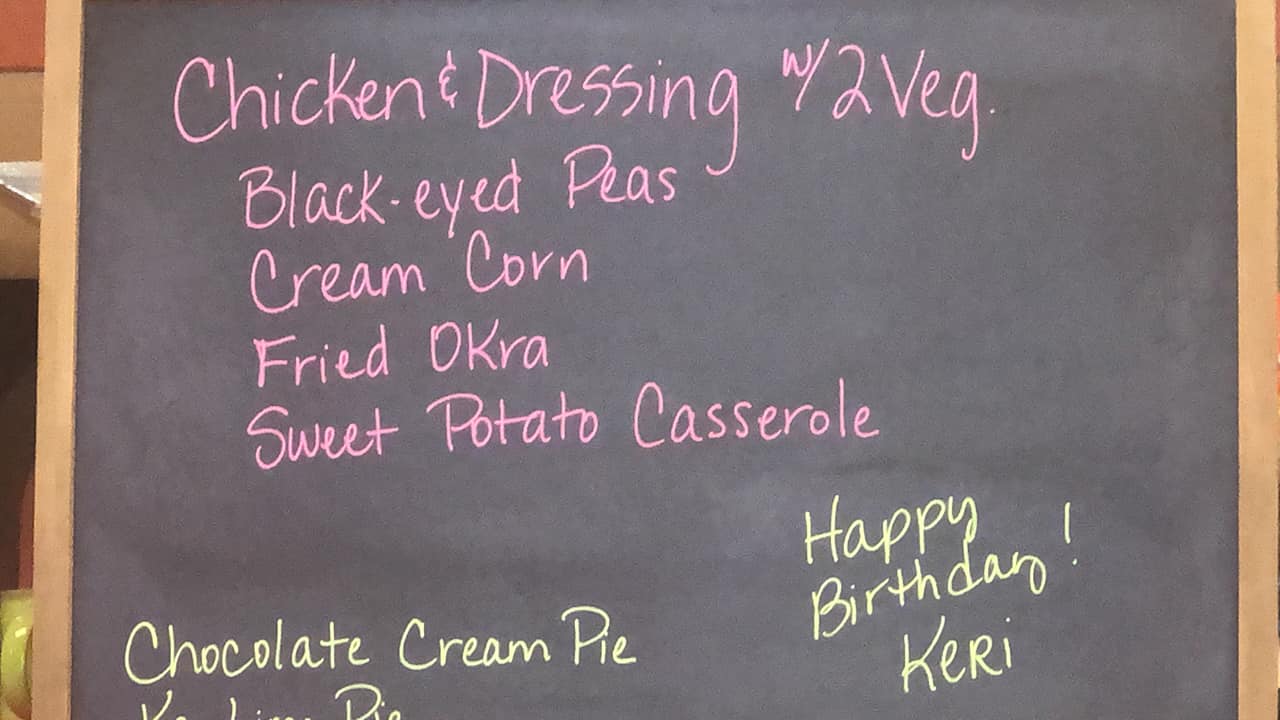 Chicken & Dressing w/ 2 Veg.
Black-eyed Peas
Cream Corn
Fried Okra
Sweet Potato Casserole
Happy
Birthday!
KERi
Chocolate Cream Pie
Key Lime Pie